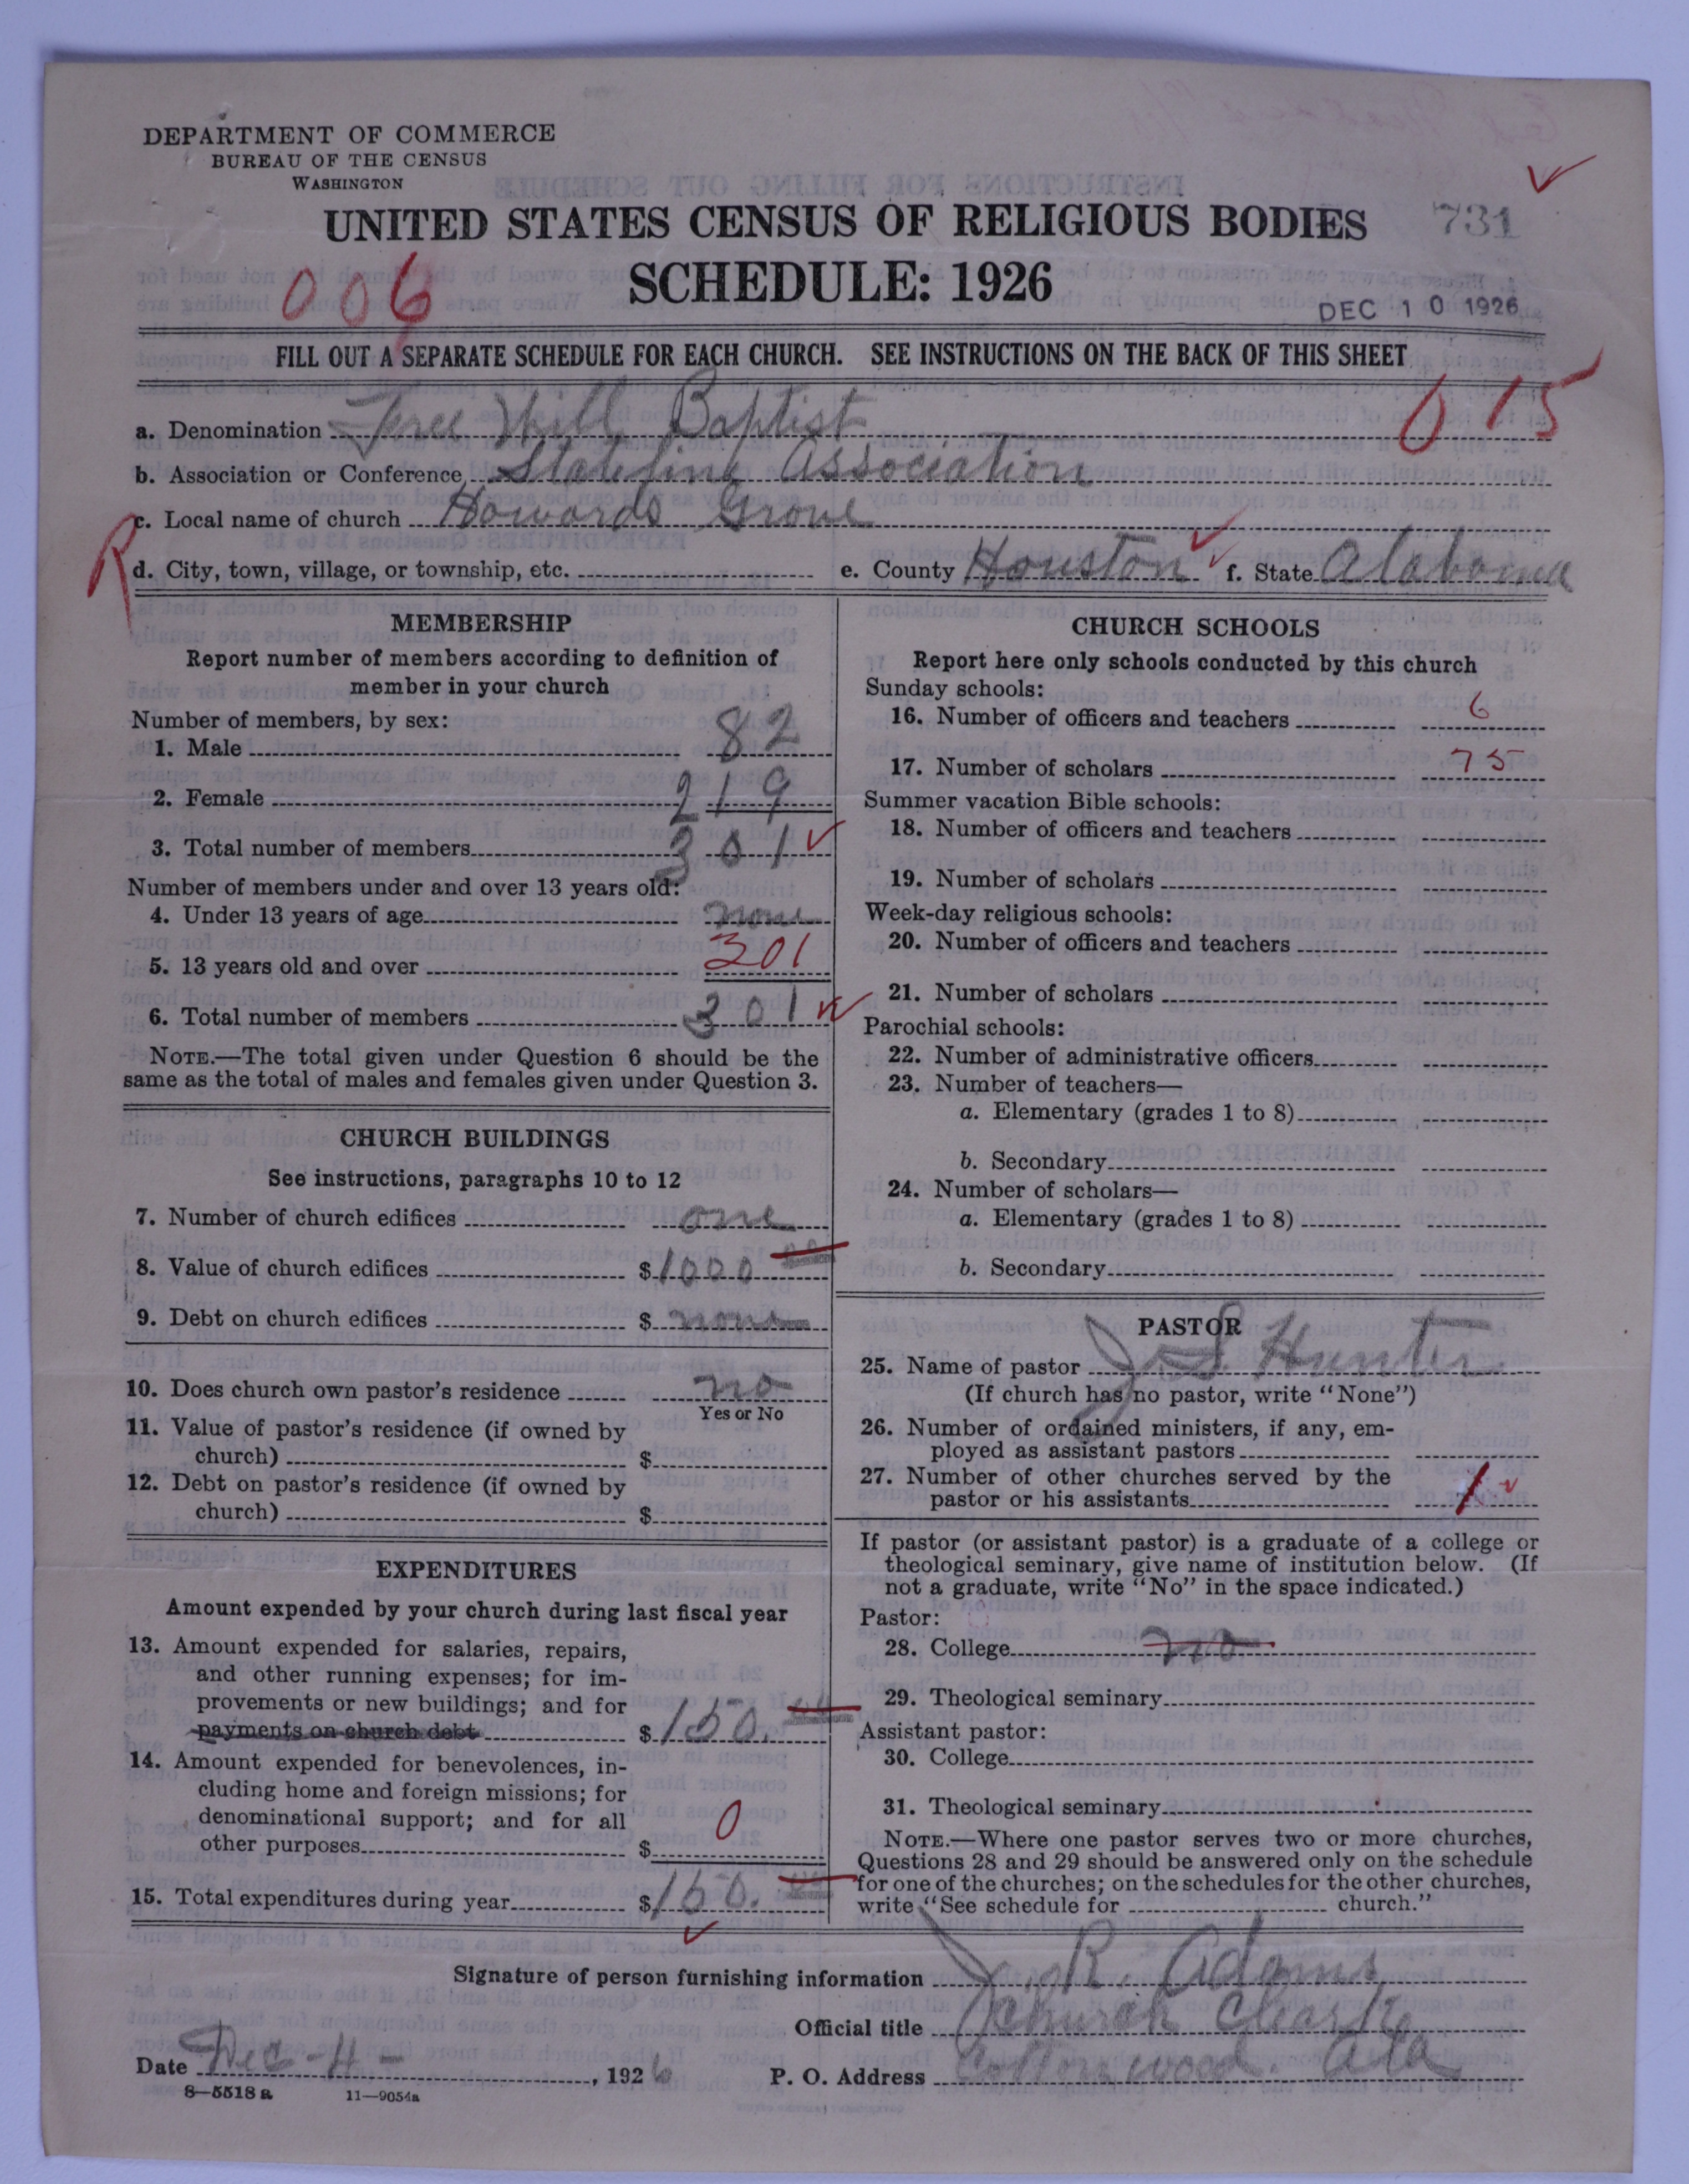 DEPARTMENT OF COMMERCE
BUREAU OF THE CENSUS
WASHINGTON
UNITED STATES CENSUS OF RELIGIOUS BODIES
731
SCHEDULE: 1926
006
DEC 10 1926
FILL OUT A SEPARATE SCHEDULE FOR EACH CHURCH. SEE INSTRUCTIONS ON THE BACK OF THIS SHEET
015
a. Denomination Free Will Baptist
b. Association or Conference Stateline Association
c. Local name of church Howards Grove
R
d. City, town, village, or township, etc. e. County Houston f. State Alabama
MEMBERSHIP
Report number of members according to definition of
member in your church
Number of members, by sex:
1. Male 82
2. Female 219
3. Total number of members 301
Number of members under and over 13 years old:
4. Under 13 years of age none
5. 13 years old and over 301
6. Total number of members 301
NOTE.—The total given under Question 6 should be the
same as the total of males and females given under Question 3.
CHURCH BUILDINGS
See instructions, paragraphs 10 to 12
7. Number of church edifices one
8. Value of church edifices $1000
9. Debt on church edifices $ none
10. Does church own pastor's residence no
Yes or No
11. Value of pastor's residence (if owned by
church) $
12. Debt on pastor's residence (if owned by
church) $
EXPENDITURES
Amount expended by your church during last fiscal year
13. Amount expended for salaries, repairs,
and other running expenses; for im-
provements or new buildings; and for
payments on church debt $150.
14. Amount expended for benevolences, in-
cluding home and foreign missions; for
denominational support; and for all
other purposes $ 0
15. Total expenditures during year $150.
CHURCH SCHOOLS
Report here only schools conducted by this church
Sunday schools:
16. Number of officers and teachers 6
17. Number of scholars 75
Summer vacation Bible schools:
18. Number of officers and teachers
19. Number of scholars
Week-day religious schools:
20. Number of officers and teachers
21. Number of scholars
Parochial schools:
22. Number of administrative officers
23. Number of teachers—
a. Elementary (grades 1 to 8)
b. Secondary
24. Number of scholars—
a. Elementary (grades 1 to 8)
b. Secondary
PASTOR
25. Name of pastor J S Hunter
(If church has no pastor, write "None")
26. Number of ordained ministers, if any, em-
ployed as assistant pastors
27. Number of other churches served by the
pastor or his assistants 1
If pastor (or assistant pastor) is a graduate of a college or
theological seminary, give name of institution below. (If
not a graduate, write "No" in the space indicated.)
Pastor:
28. College no
29. Theological seminary
Assistant pastor:
30. College
31. Theological seminary
NOTE.—Where one pastor serves two or more churches,
Questions 28 and 29 should be answered only on the schedule
for one of the churches; on the schedules for the other churches,
write "See schedule for church."
Signature of person furnishing information J. R. Adams
Official title Church Clearke
Date Dec-4-, 1926 P. O. Address Cottonwood. Ala
8—5518a 11—9054a